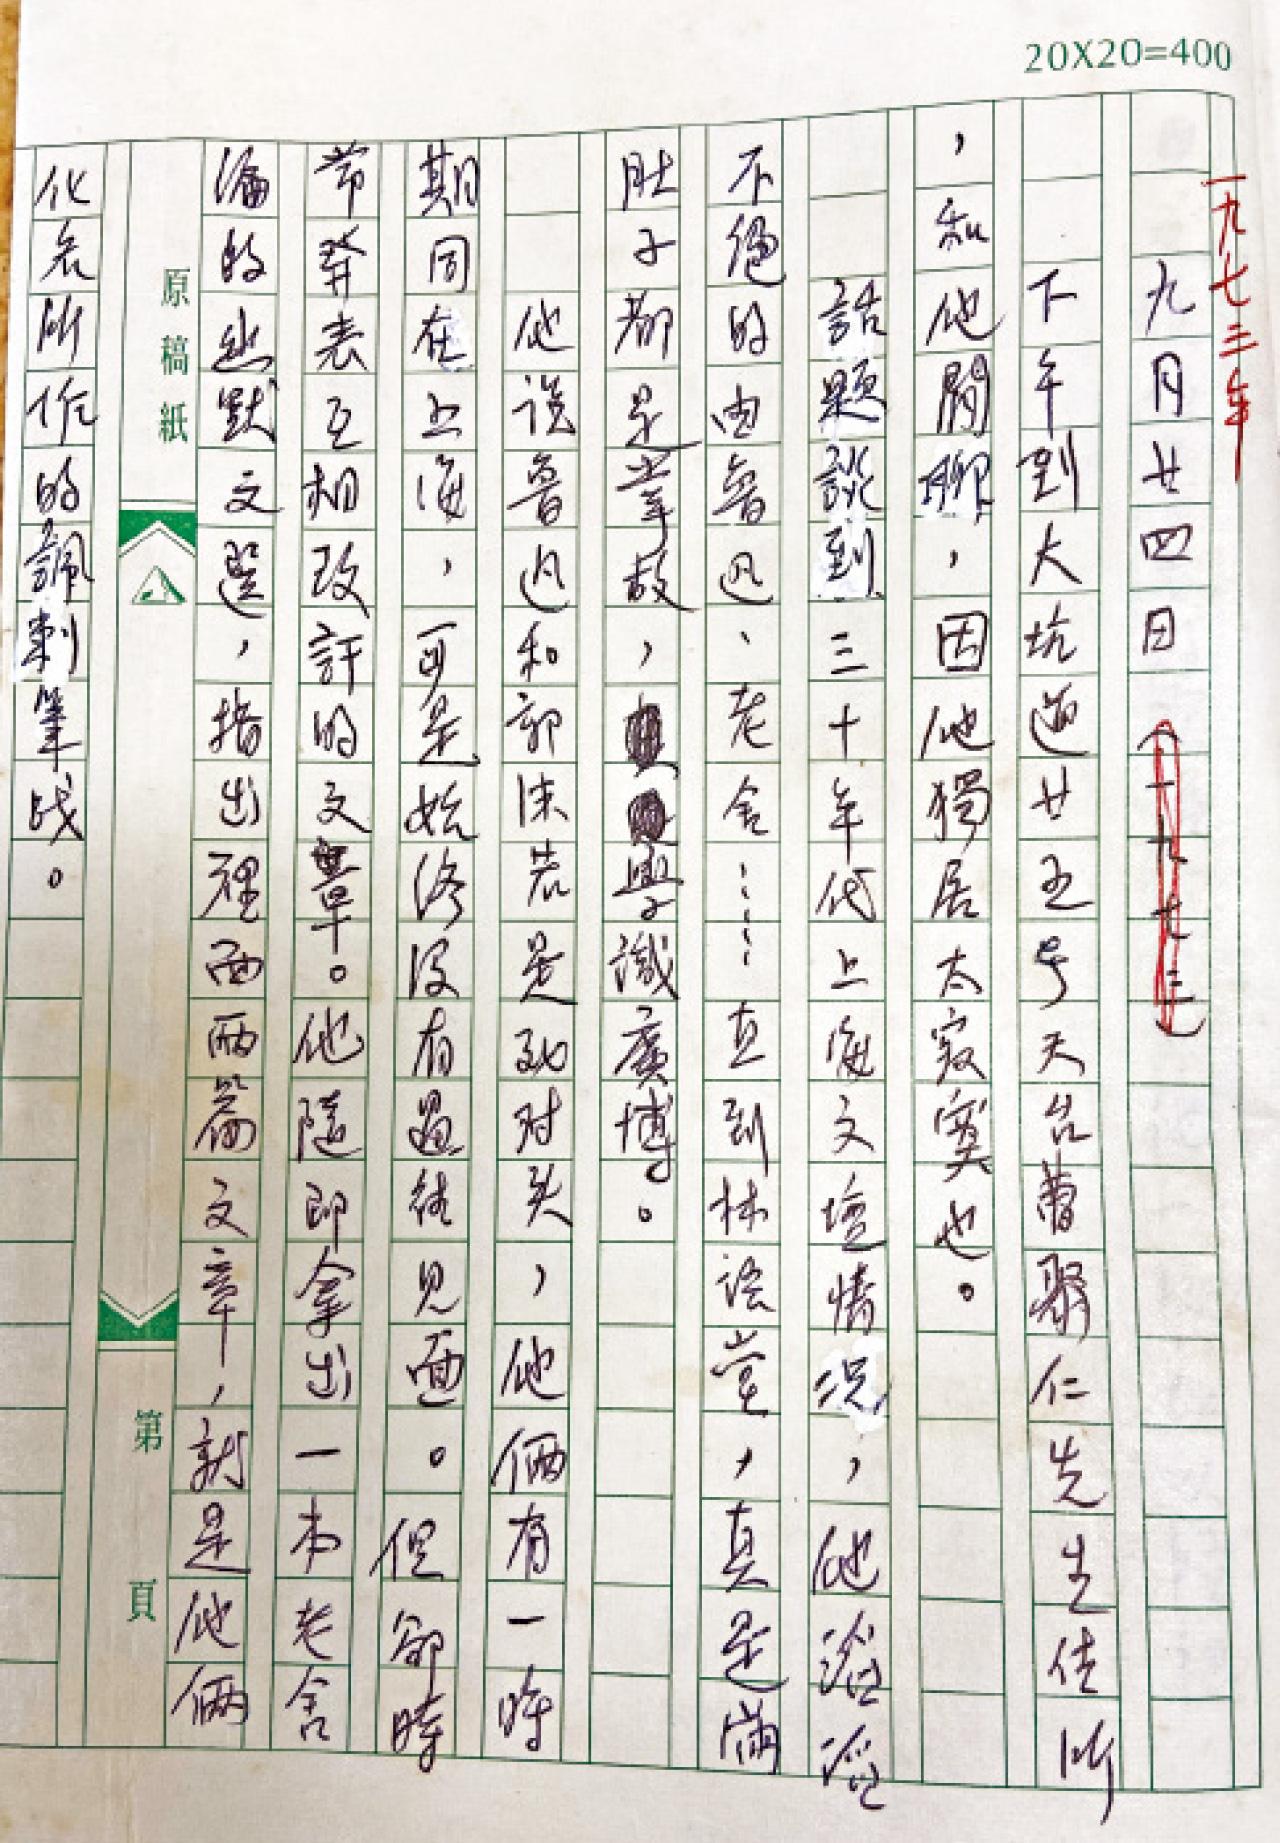 20X20=400
一九七三年
九月廿四日（一九七三）
下午到大坑道廿五号天台曹聚仁先生住所
，和他閒聊，因他獨居太寂寞也。
話題談到三十年代上海文壇情况，他滔滔
不絕的由魯迅、老舍……直到林語堂，真是满
肚子都是掌故，學識廣博。
他説魯迅和郭沫若是死对头，他倆有一時
期同在上海，可是始终没有過往見面。但卻時
常發表互相攻訐的文章。他隨即拿出一本老舍
编的幽默文選，指出裡面兩篇文章，就是他倆
原稿紙
第 頁
化名所作的諷刺筆战。